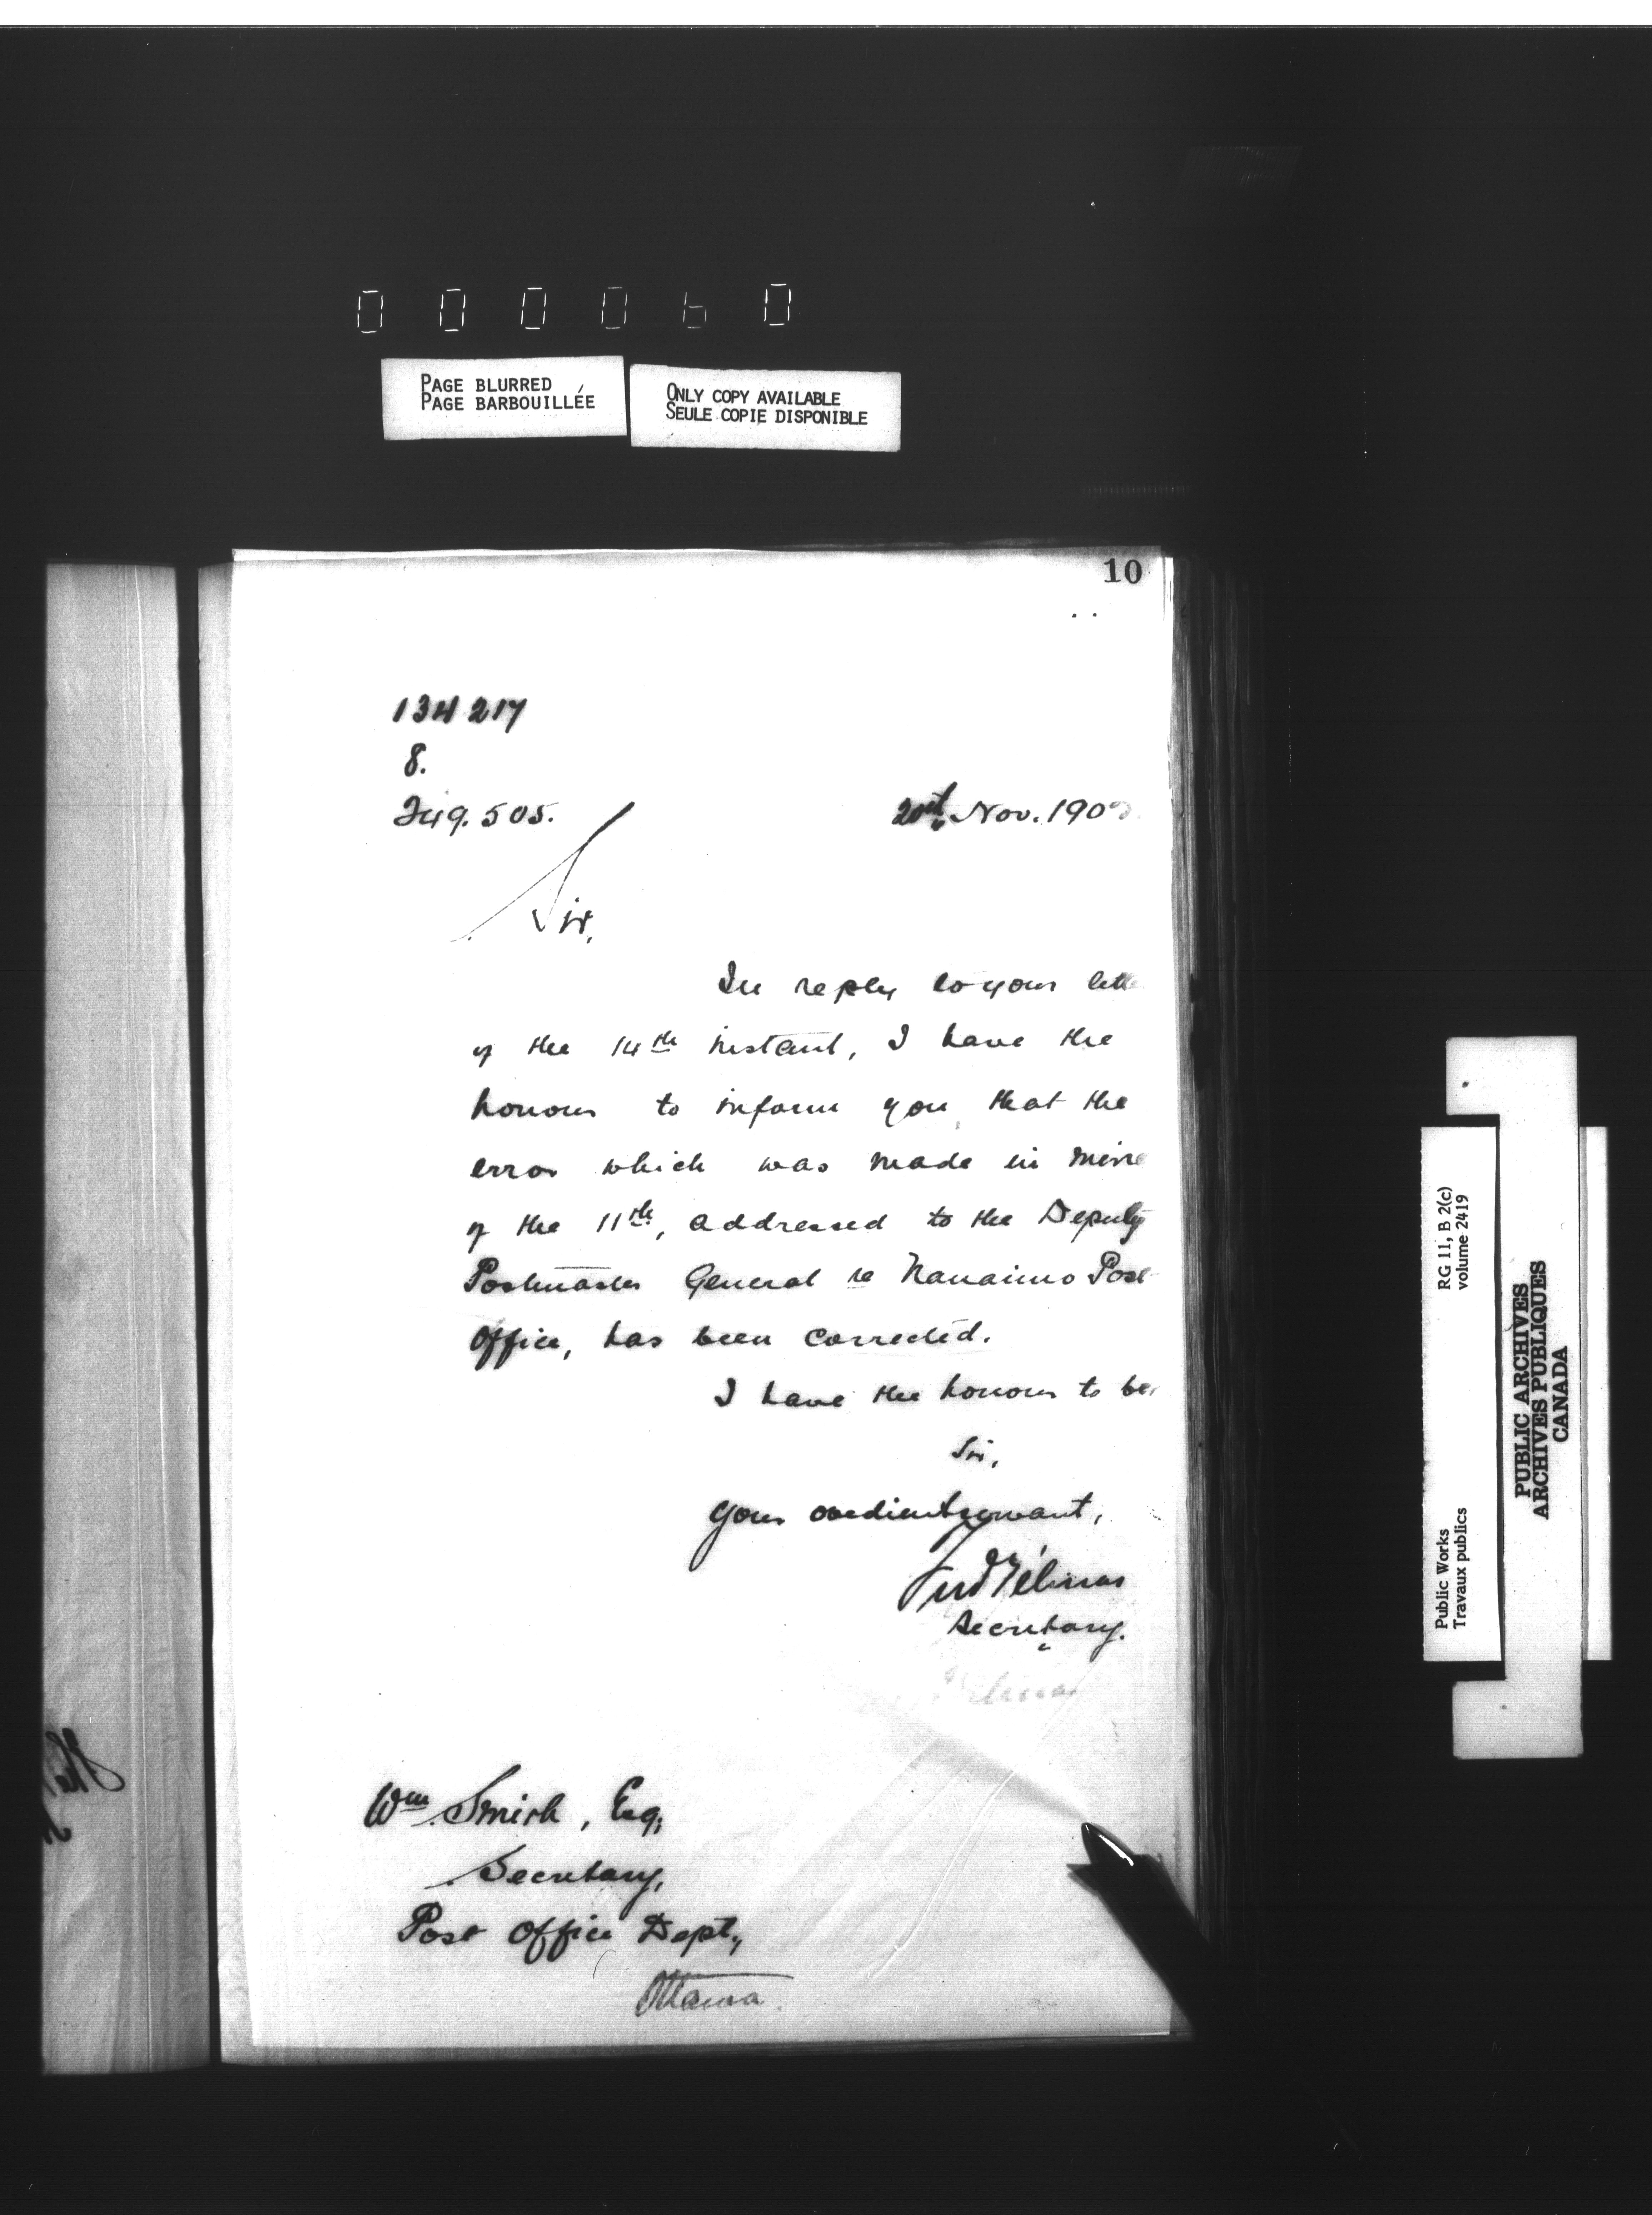 000060
PAGE BLURRED
PAGE BARBOUILLÉE
ONLY COPY AVAILABLE
SEULE COPIE DISPONIBLE
10
134217
8.
249.505.
Nov. 190
Sir,
In reply to your lette
of the 14th instant, I have the
honour to inform you, that the
error which was made in mine
of the 11th, addressed to the Deputy
Postmaster General re Nanaimo Post
Office, has been corrected.
I have the honour to be,
Sir,
Your obedient servant,
Fred Gélinas
Secretary.
Wm Smith, Esq;
Secretary,
Post Office Dept,
Ottawa.
RG 11, B 2(c)
volume 2419
Public Works
Travaux publics
PUBLIC ARCHIVES
ARCHIVES PUBLIQUES
CANADA